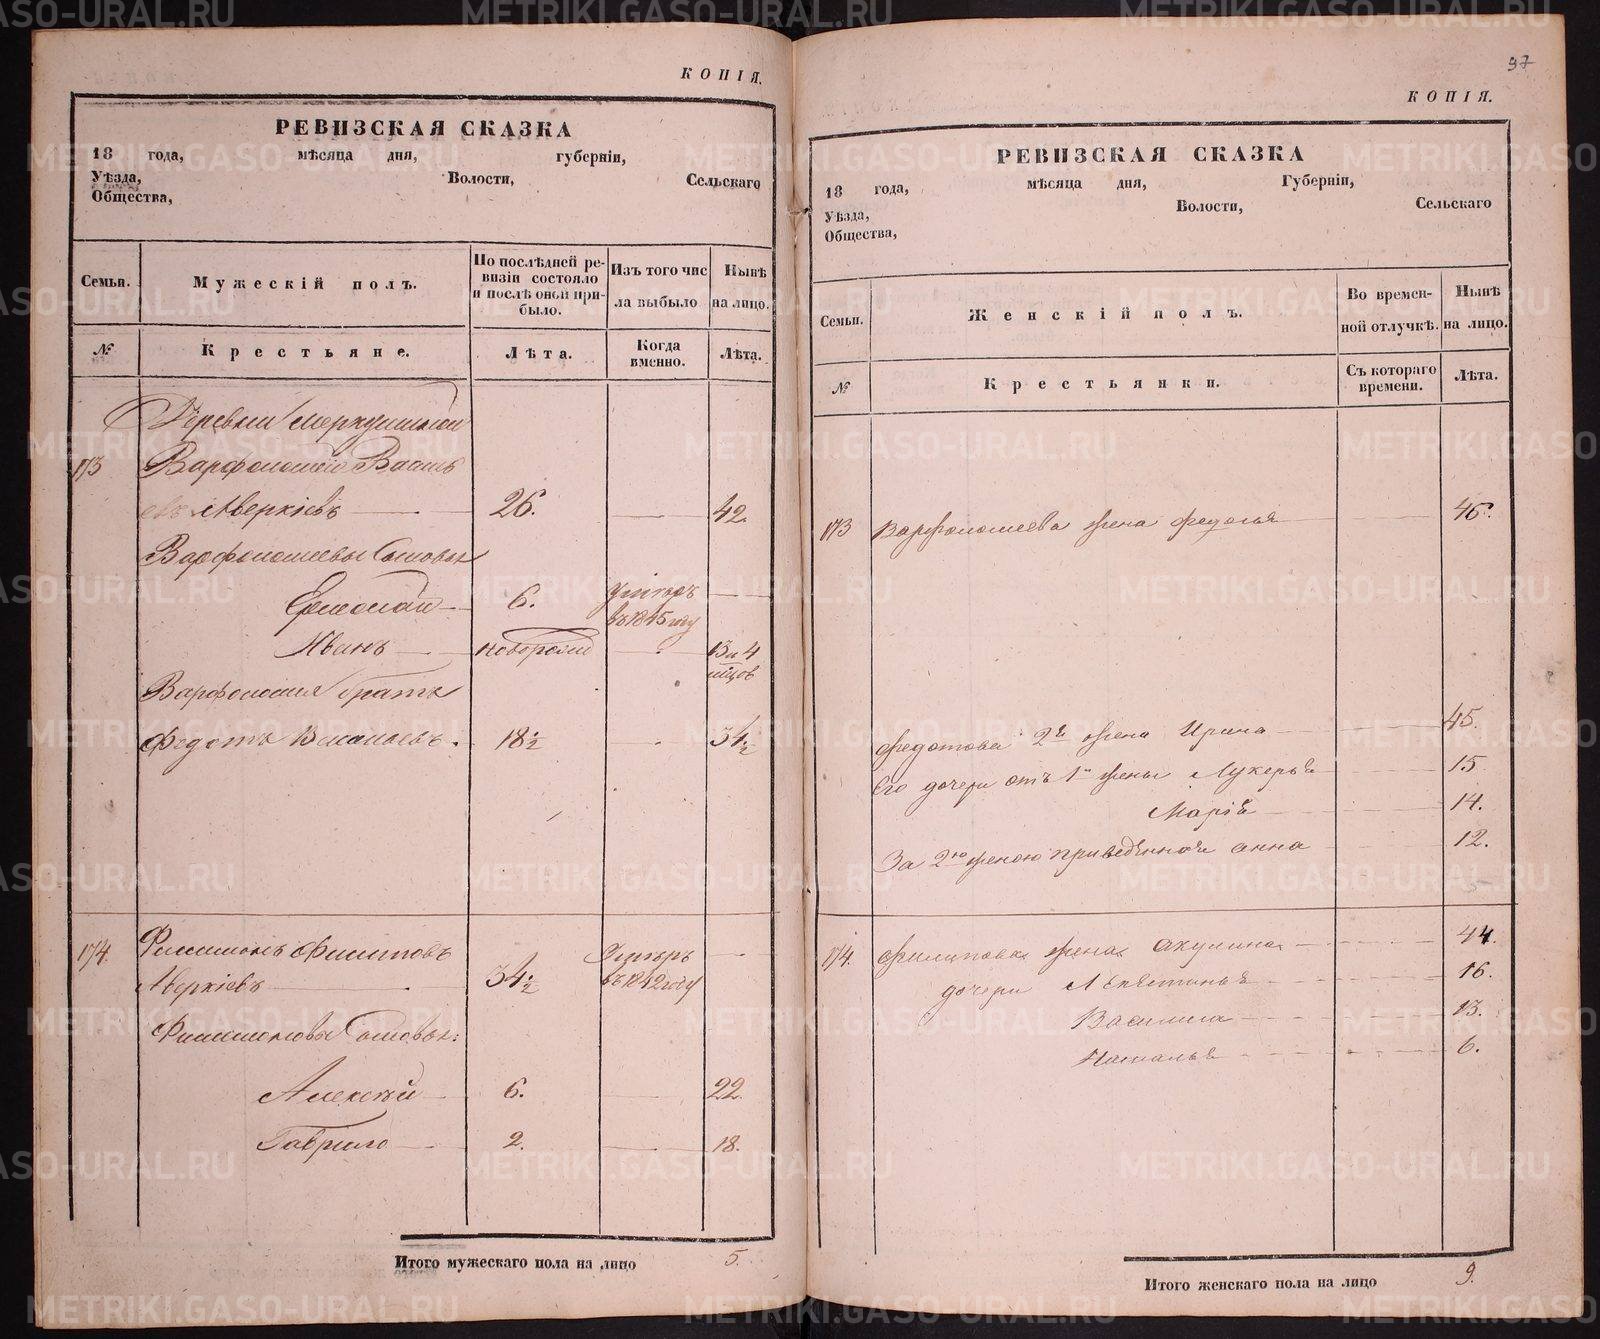 КОПІЯ.
РЕВИЗСКАЯ СКАЗКА
18 года, мѣсяца дня, губерніи,
Уѣзда, Волости, Сельскаго
Общества,
Семьи. Мужескій полъ. По послѣдней ревизіи состояло и послѣ оной прибыло. Изъ того числа выбыло Нынѣ на лицо.
№ Крестьяне. Лѣта. Когда именно. Лѣта.
Деревни Меркушиной
173 Варфоломей Василь
евъ Аверкіевъ 26. 42.
Варфоломеевы Сыновья
Ермолай 6. Умеръ въ 1845 году
Иванъ новорожд 13 и 4 мцов
Варфоломея братъ
Федотъ Васильевъ. 18½ 34½
174. Филимонъ Филиповъ
Аверкіевъ 34½ Умеръ въ 1842 году
Филимоновы Сыновья:
Алексѣй 6. 22.
Гаврило 2. 18.
Итого мужескаго пола на лицо 5.
97
КОПІЯ.
РЕВИЗСКАЯ СКАЗКА
18 года, мѣсяца дня, Губерніи,
Уѣзда, Волости, Сельскаго
Общества,
Семьи. Женскій полъ. Во временной отлучкѣ. Нынѣ на лицо.
№ Крестьянки. Съ котораго времени. Лѣта.
173 Варфоломеева жена Федосья 46.
Федотова 2я жена Ирина 45.
Его дочери отъ 1й жены Лукерья 15
Марія 14.
За 2ю женою приведенная Анна 12.
174. Филипова жена Акулина 44.
дочери 16.
Василиса 13.
Наталья 6.
Итого женскаго пола на лицо 9.
METRIKI.GASO-URAL.RU